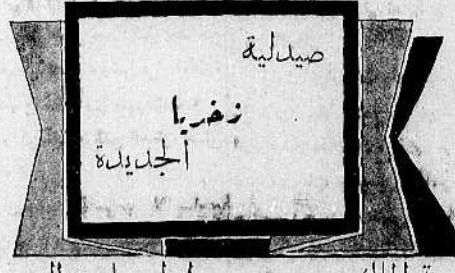 صيدلية
زخريا
الجديدة